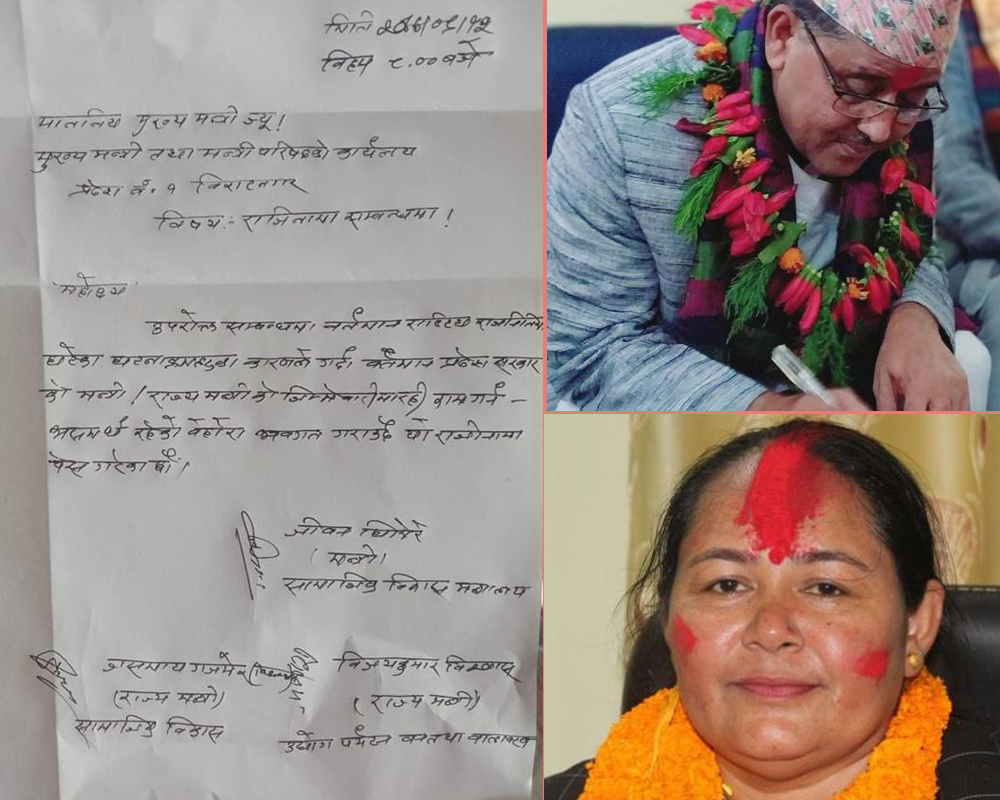 मिति २०७७/०९/१२
विहान ८.०० बजे
माननिय मुख्य मन्त्री ज्यू!
मुख्य मन्त्री तथा मन्त्री परिषदको कार्यलय
प्रदेश नं. १ विराटनगर
विषय:- राजिनामा सम्बन्धमा!
महोदय
उपरोक्त सम्बन्धमा वर्तमान राष्ट्रिय राजनितिमा
घटेका घटनाक्रमहरुका कारणले गर्दा वर्तमान प्रदेश सरकार
को मन्त्री/राज्य मन्त्री को जिम्मेवारीमा रही काम गर्न –
असमर्थ रहेको वेहोरा अवगत गराउँदै यो राजीनामा
पेस गरेका छौं।
जीवन घिमिरे
(मन्त्री)
सामाजिक विकास मन्त्रालय
जसमाया गजमेर विजयकुमार विश्वास
(राज्य मन्त्री) (राज्य मन्त्री)
सामाजिक विकास
उद्योग पर्यटन वन तथा वातावरण